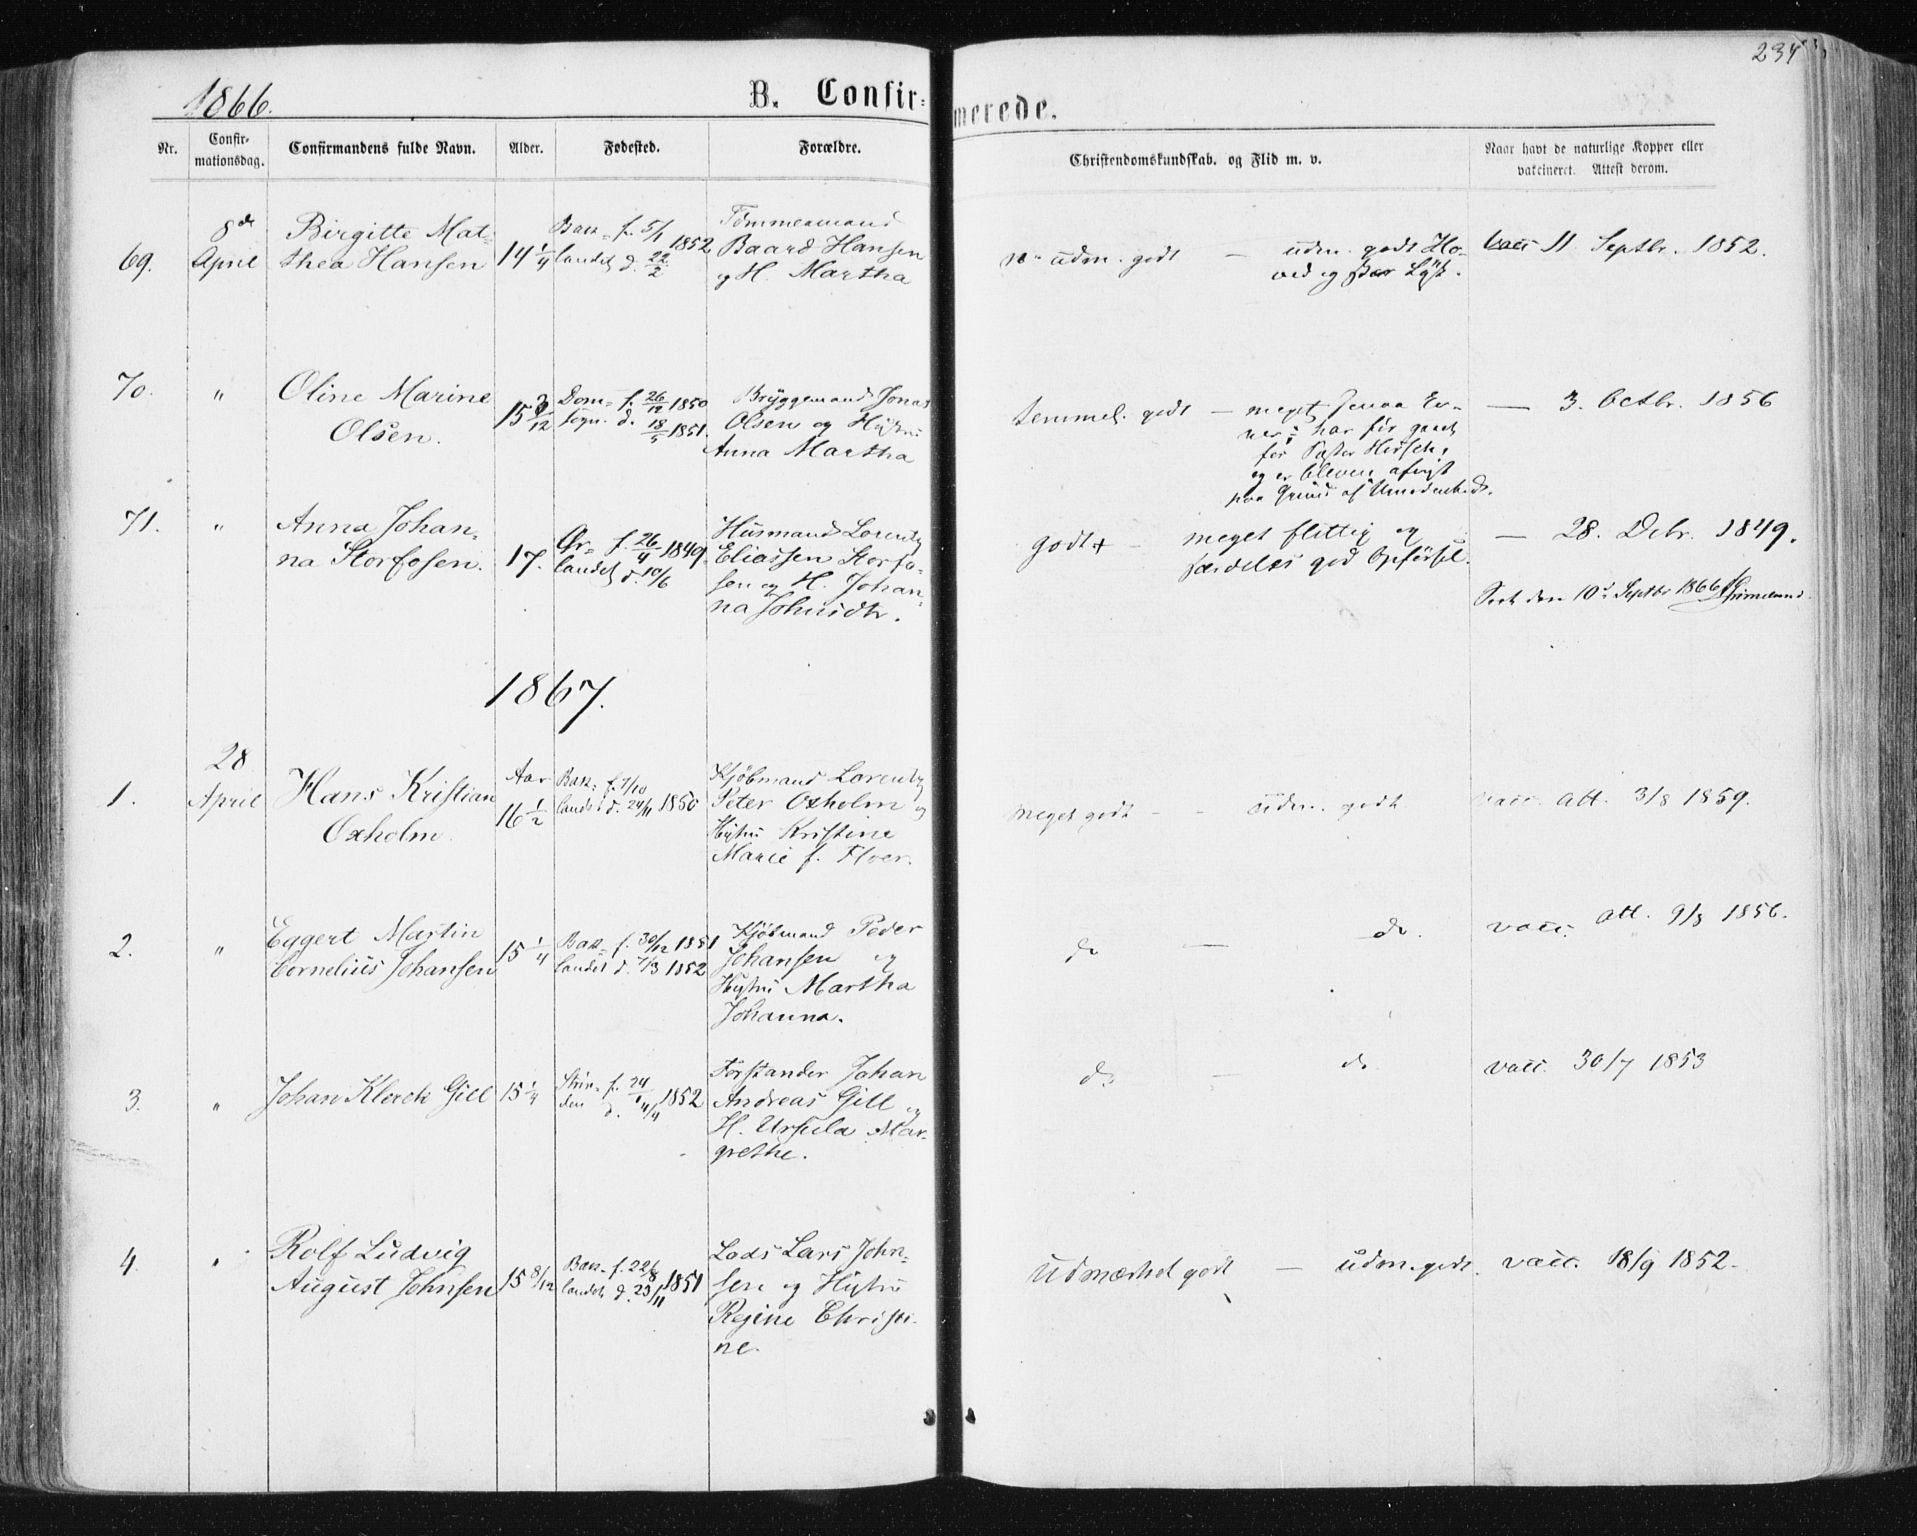 234
1866.
B. Confir=
merede.
Nr.
Confir-
mationsdag.
Confirmandens fulde Navn.
Alder.
Fødested.
Forældre.
Christendomskundskab. og Flid m. v.
Naar havt de naturlige Kopper eller
vakcineret. Attest derom.
69.
8de
April
Birgitte Mat-
thea Hansen
14 1/4
Bak- f. 5/1 1852
landet d. 22/2
Tømmermand
Baard Hansen
og H. Martha
udm. godt — udm. godt Ho-
ved og stor Lyst.
vacc 11 Septbr. 1852.
70.
"
Oline Marine
Olsen.
15 3/12
Dom- f. 26/12 1850
sogn. d. 18/5 1851.
Bryggemand Jonas
Olsen og Hustru
Anna Martha
temmel. godt — meget smaa Ev-
ner; har før gaaet
for Pastor Hirsch,
og er bleven afvist
paa Grund af Umodenhed.
— 3. Octbr. 1856
71.
"
Anna Johan-
na Storfosen.
17.
Ør- f. 26/4 1849.
landet d. 10/6
Husmand Lorentz
Eliassen Storfo-
sen og H. Johan-
na Schmidt.
godt + — meget flittig og
særdeles god Opførsel.
— 28. Debr. 1849.
Seet den 10d Septbr 1866
1867.
1.
28
April
Hans Kristian
Oxholm.
Aar
16 1/2
Bak- f. 7/10
landet d. 24/11 1850
Kjøbmand Lorentz
Peter Oxholm og
Hustru Kristine
Marie f. Floer.
meget godt — udm. godt
vacc. att. 3/8 1859.
2.
"
Eggert Martin
Cornelius Johansen
15 1/4
Bak- f. 30/12 1851
landet d. 7/3 1852
Kjøbmand Peder
Johansen og
Hustru Martha
Johanna.
do — do.
vacc. att. 9/8 1856.
3.
"
Johan Klerck Gill
15 1/4
Strin- f. 24/1 1852
den d. 4/4
Forstander Johan
Andreas Gill og
H. Ursula Mar-
grethe.
do — do
vacc. 30/7 1853
4.
"
Rolf Ludvig
August Johnsen
15 8/12
Bak- f. 22/8 1851
landet d. 23/11
Lods Lars John-
sen og Hustru
Regine Christi-
ne.
Udmærket godt — udm. godt.
vacc. 18/9 1852.